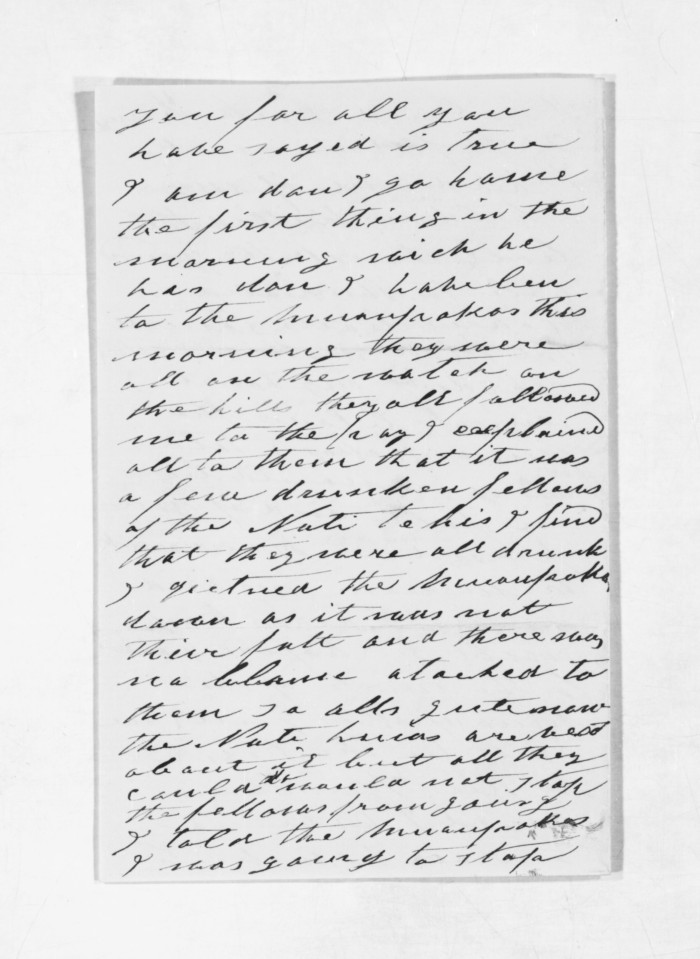 you for all you
have sayed is true
& am don I go home
the first thing in the
morning wich he
has don I have ben
to the this
morning they were
all on the watch on
the hills they all followed
me to the pay I explained
all to them that it was
a few drunken fellows
of the Nati Te his I find
that they were all drunk
I the
down as it was not
their falt and there was
no blame atached to
them so alls quite now
the Nati are vext
about it but all they
could do would not stop
the fellows from going
I told the
I was going to stop